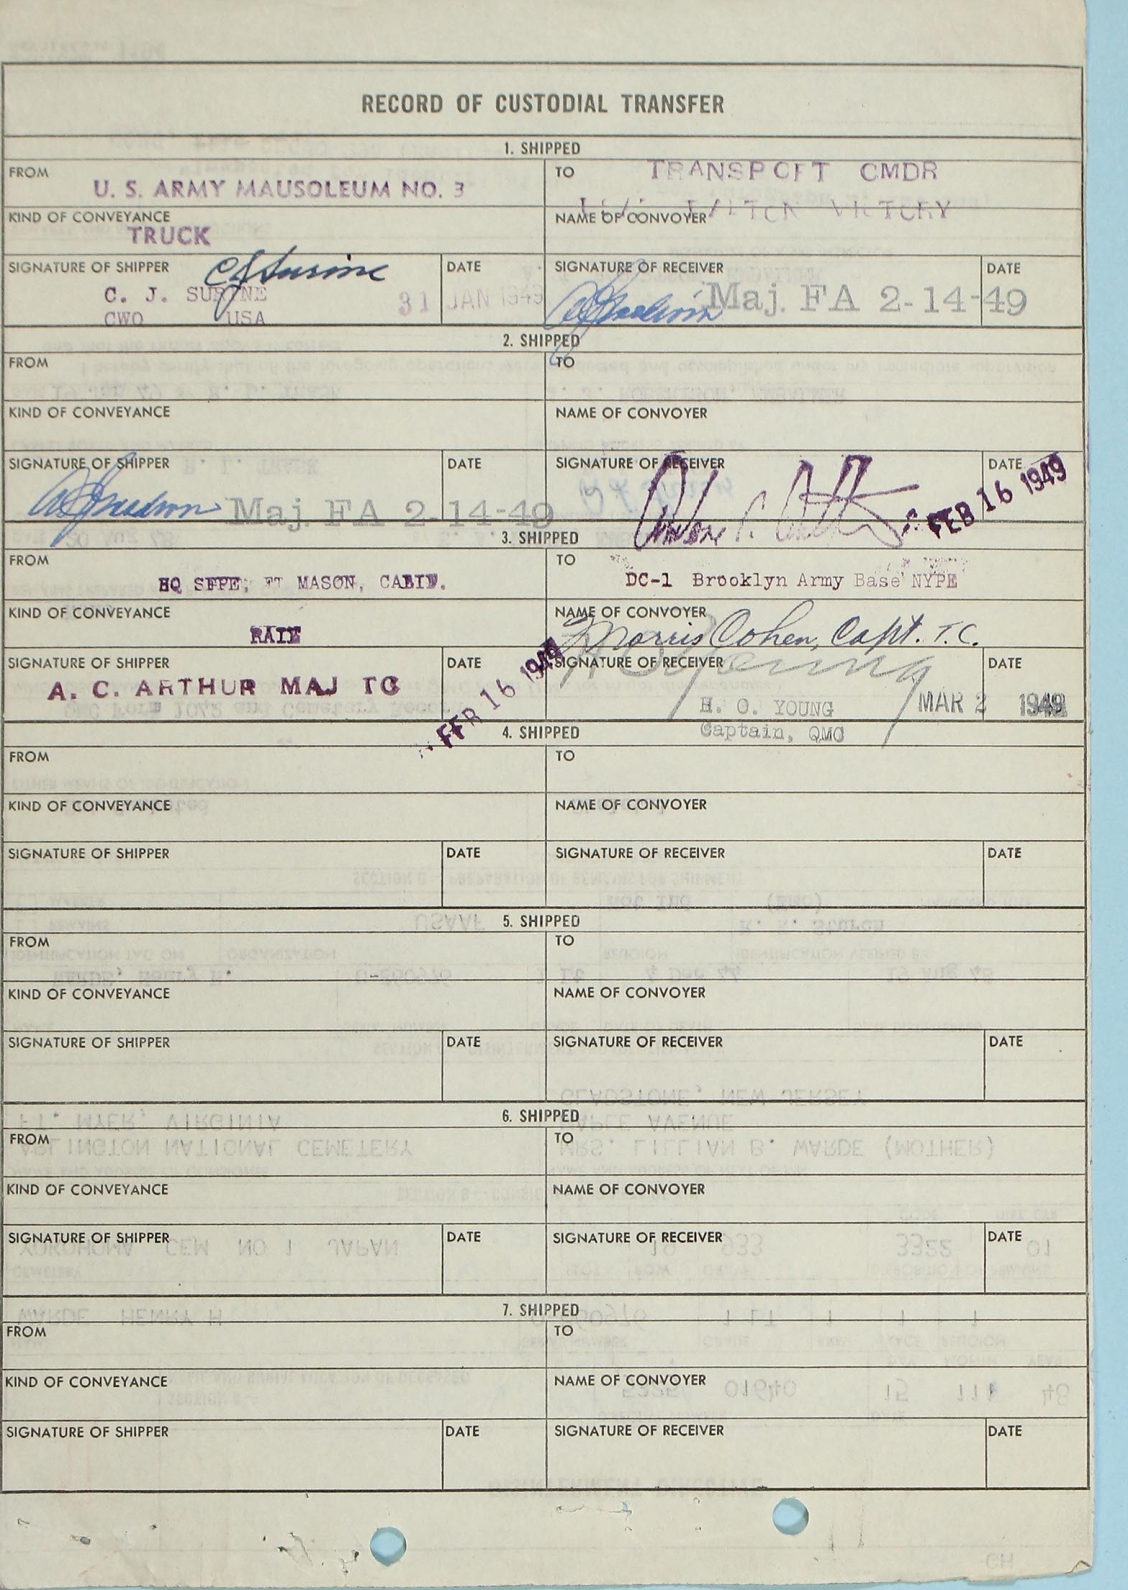 RECORD OF CUSTODIAL TRANSFER
1. SHIPPED
FROM U. S. ARMY MAUSOLEUM NO. 3
TO TRANSPORT CMDR
KIND OF CONVEYANCE TRUCK
NAME OF CONVOYER VICTORY
SIGNATURE OF SHIPPER C. J. SURINE
CWO USA
DATE 31 JAN 1949
SIGNATURE OF RECEIVER Maj. FA 2-14-49
DATE
2. SHIPPED
FROM
TO
KIND OF CONVEYANCE
NAME OF CONVOYER
SIGNATURE OF SHIPPER Maj. FA 2-14-49
DATE
SIGNATURE OF RECEIVER
DATE FEB 16 1949
3. SHIPPED
FROM HQ SFPE, FT MASON, CALIF.
TO DC-1 Brooklyn Army Base NYPE
KIND OF CONVEYANCE RAIL
NAME OF CONVOYER Morris Cohen, Capt. T.C.
SIGNATURE OF SHIPPER A. C. ARTHUR MAJ TC
DATE FEB 16 1949
SIGNATURE OF RECEIVER H O Young
H. O. YOUNG
Captain, QMC
DATE MAR 2 1949
4. SHIPPED
FROM
TO
KIND OF CONVEYANCE
NAME OF CONVOYER
SIGNATURE OF SHIPPER
DATE
SIGNATURE OF RECEIVER
DATE
5. SHIPPED
FROM
TO
KIND OF CONVEYANCE
NAME OF CONVOYER
SIGNATURE OF SHIPPER
DATE
SIGNATURE OF RECEIVER
DATE
6. SHIPPED
FROM
TO
KIND OF CONVEYANCE
NAME OF CONVOYER
SIGNATURE OF SHIPPER
DATE
SIGNATURE OF RECEIVER
DATE
7. SHIPPED
FROM
TO
KIND OF CONVEYANCE
NAME OF CONVOYER
SIGNATURE OF SHIPPER
DATE
SIGNATURE OF RECEIVER
DATE